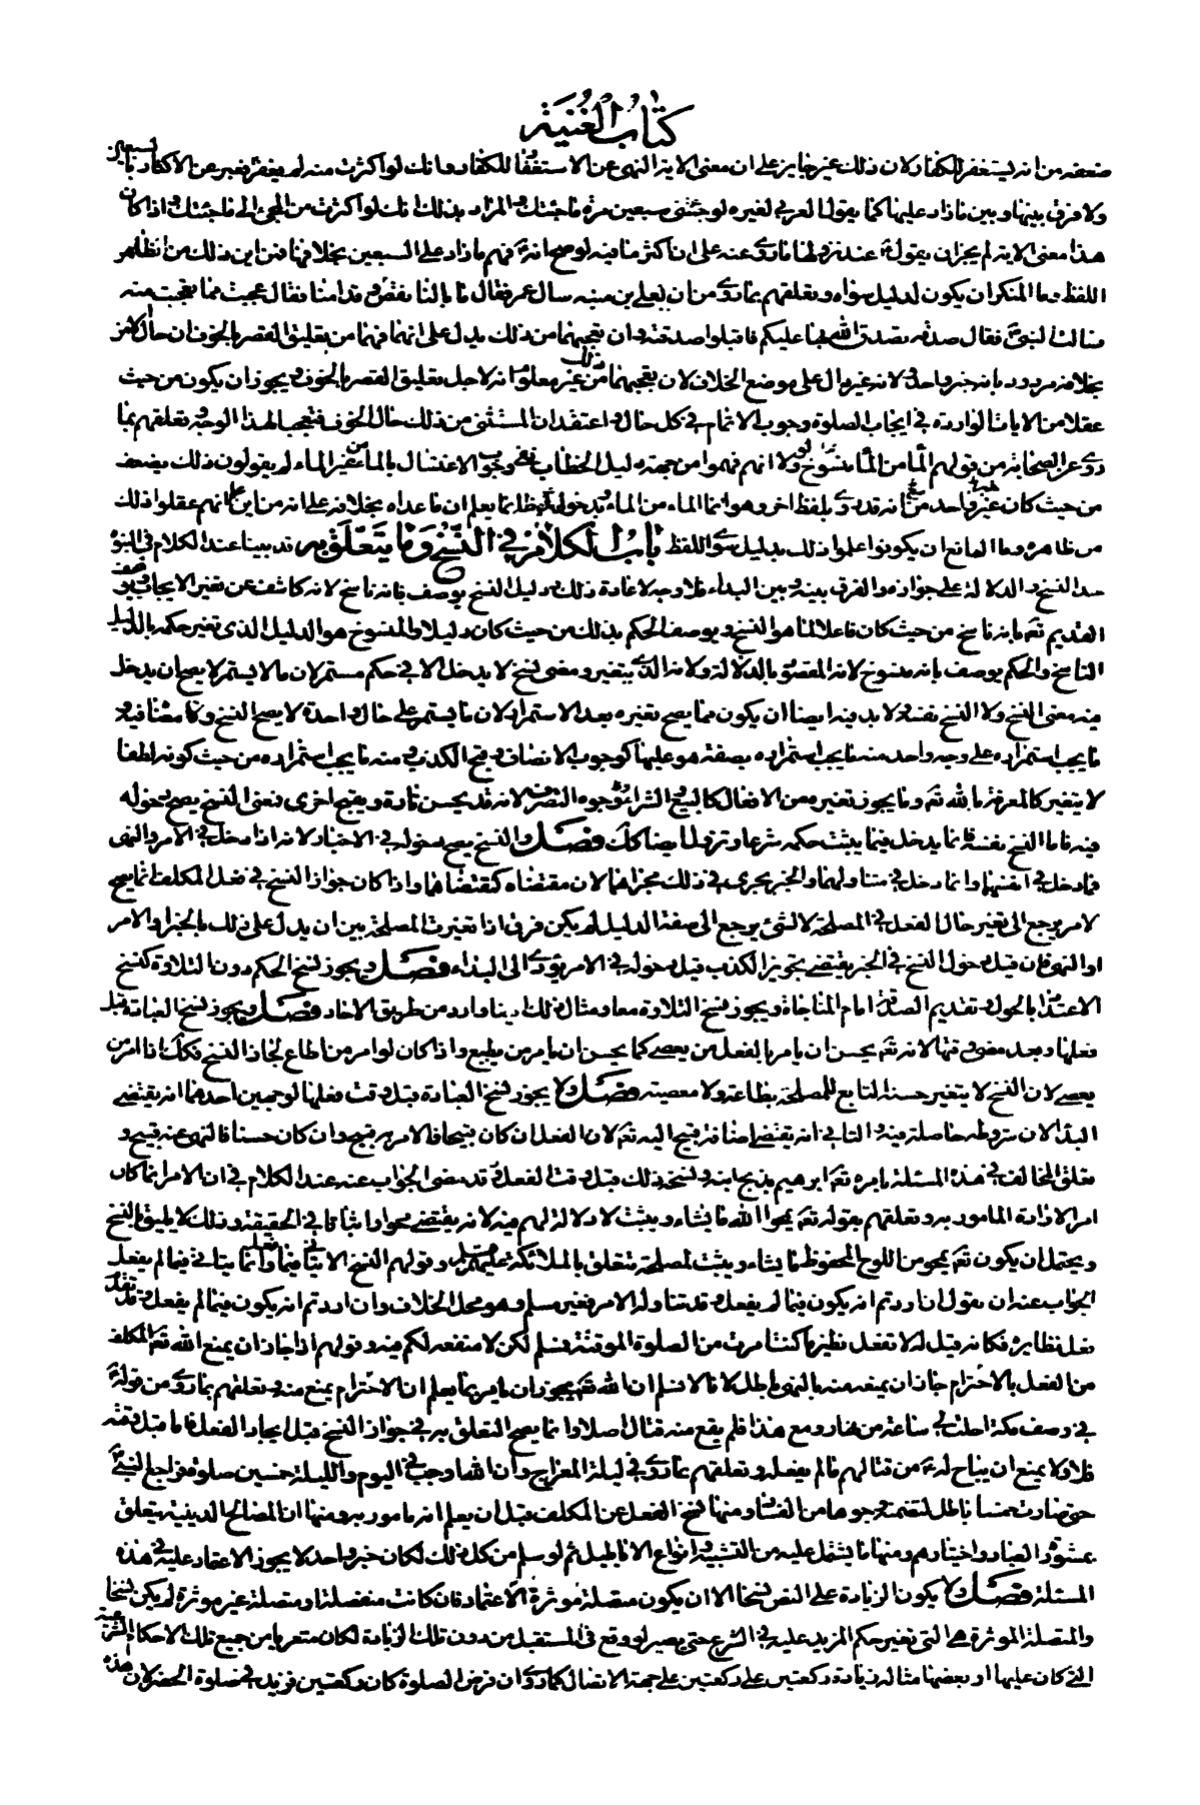 كتاب الغنية
ضعفه من انه يستغفر للكفار لان ذلك غير جايز على ان معنى الاية النهى عن الاستغفار للكفار وانك لو اكثرت منه لم يغفر فعبر عن الاكثار بالسبعين
ولا فرق بينها وبين ما زاد عليها كما يقول العربى لغيره لو جئتنى سبعين مرة ما جئتك والمراد بذلك انك لو اكثرت من المجئ الى ما جئتك واذا كان
هذا معنى الاية لم يجز ان يقول عند نزولها ما روى عنه على ان اكثر ما فيه لو صح انه فهم ما زاد على السبعين بخلافها فمن اين ذلك من ظاهر
اللفظ وما المنكر ان يكون لدليل سواه وتعلقهم بما روى من ان يعلى بن منيه سال عمر فقال ما بالنا نقصر وقد امنا فقال عجبت مما تعجبت منه
فسالت النبى فقال صدقة تصدق الله بها عليكم فاقبلوا صدقته وان تعجبهما من ذلك يدل على انهما فهما من تعليق القصر بالخوف ان حال الامن
بخلافه مردود بانه خبر واحد ولانه غير دال على موضع الخلاف لان تعجبهما من ذلك غير معلوم انه لاجل تعليق القصر بالخوف ويجوز ان يكون من حيث
عقلا من الايات الواردة فى ايجاب الصلوة وجوب الاتمام فى كل حال واعتقدا ان المستثنى من ذلك حال الخوف فتعجبا لهذا الوجه وتعلقهم بما
روى عن الصحابة من قولهم الما من الما منسوخ ولو لا انهم فهموا من جهة دليل الخطاب نفى وجوب الاغتسال بالماء من غير الماء لم يقولون ذلك يضعف
من حيث كان خبر واحد من انه قد روى بلفظ اخر وهو انما الماء من الماء وبدخول لفظ انما يعلم ان ما عداه بخلافه على انه من اين علم انهم عقلوا ذلك
من ظاهره وما المانع ان يكونوا علموا ذلك بدليل سوى اللفظ باب الكلام فى النسخ وما يتعلق به قد بينا عند الكلام فى النبوة
حد النسخ والدلالة على جوازه والفرق بينه وبين البداء فلا وجه لاعادة ذلك ودليل النسخ يوصف بانه ناسخ لانه كاشف عن تغير الايجاب ويوصف
القديم تعم بانه ناسخ من حيث كان فاعلا لما هو النسخ ويوصف الحكم بذلك من حيث كان دليلا والمنسوخ هو الدليل الذى تغير حكمه بالدليل
الناسخ والحكم يوصف بانه منسوخ لانه المقصود بالدلالة ولانه الذى يتغير ومعنى نسخ لا يدخل الا فى حكم مستمر لان ما لا يستمر لا يصح ان يدخل
فيه معنى النسخ ولا النسخ نفسه ولا بد فيه ايضا ان يكون مما يصح تغيره بعد الاستمرار لان ما يستمر على حال واحدة لا يصح النسخ ولا معناه فيه و
ما يجب استمراره على وجه واحد منه ما يجب استمراره بصفة هو عليها كوجوب الانصاف وقبح الكذب ومنه ما يجب استمراره من حيث كونه لطفا
لا يتغير كالمعرفة بالله تعم وما يجوز تغيره من الافعال كالبيع والشراء ووجوه التصرف لانه قد يحسن تارة ويقبح اخرى فمعنى النسخ يصح دخوله
فيه فاما النسخ نفسه فانما يدخل فيما يثبت حكمه شرعا وتزول ايضا كك فصل والنسخ يصح دخوله فى الاخبار لانه اذا دخل فى الامر والنهى
فما دخل فى انفسهما وانما دخل فى متناولهما والخبر يجرى فى ذلك مجراهما لان مقتضاه كمقتضاهما واذا كان جواز النسخ فى فعل المكلف انما يصح
لامر يرجع الى تغير حال الفعل فى المصلحة لا لشئ يرجع الى صفة الدليل لم يكن فرق اذا تغيرت المصلحة بين ان يدل على ذلك بالخبر او الامر
او النهى فان قيل دخول النسخ فى الخبر يقتضى تجويز الكذب قيل دخوله فى الامر يؤدى الى البداء فصل ويجوز نسخ الحكم دون التلاوة كنسخ
الاعتداد بالحول وتقديم الصدقة امام المناجاة ويجوز نسخ التلاوة معا ومثال ذلك ايضا وارد من طريق الاحاد فصل ويجوز نسخ العبادة قبل
فعلها وبعد مضى وقتها لانه تعم يحسن ان يامر بالفعل من يعصى كما يحسن ان يامر من يطيع واذا كان لو امر من اطاع لجاز النسخ فكك اذا امر من
يعصى لان النسخ لا يتغير حسنه التابع للمصلحة بطاعة ولا معصية فصل ولا يجوز نسخ العبادة قبل وقت فعلها لوجهين احدهما انه يقتضى
البداء لان شروطه حاصلة فيه والثانى انه يقتضى اضافة قبيح اليه تعم لان الفعل ان كان قبيحا فالامر به قبيح وان كان حسنا فالنهى عنه قبيح و
تعلق المخالف فى هذه المسئلة بامره تعم ابرهيم بذبح ابنه ونسخه ذلك قبل وقت الفعل وقد مضى الجواب عنه عند الكلام فى ان الامر انما كان
امرا لارادة المامور به وتعلقهم بقوله تعم يمحوا الله ما يشاء ويثبت لا دلالة لهم فيه لانه يقتضى محوا واثباتا فى الحقيقة وذلك لا يليق بالنسخ
ويحتمل ان يكون تعم يمحو من اللوح المحفوظ ما يشاء ويثبت لمصلحة تتعلق بالملائكة عليهم السلم وقولهم النسخ لا يتاتى فيما فعل وانما يتاتى فيما لم يفعل
الجواب عنه ان نقول ان اردتم انه يكون فيما لم يفعل وقد تناوله الامر فغير مسلم وهو محل الخلاف وان اردتم انه يكون فيما لم يفعل وقد تقدم
فعل نظايره فكانه قيل له لا تفعل نظير ما كنت امرت من الصلوة الموقتة فمسلم لكن لا منفعة لكم فيه وقولهم اذا جاز ان يمنع الله تعم المكلف
من الفعل بالاخترام جاز ان يمنعه منه بالنهى باطل لانا لا نسلم ان الله تعم يجوز ان يامر بما يعلم ان الاخترام يمنع منه وتعلقهم بما روى من قوله
فى وصف مكة احلت لى ساعة من نهار ومع هذا فلم يقع منه قتال اصلا وانما يصح التعلق به فى جواز النسخ قبل ايجاد الفعل فاما قبل وقته
فلا ولا يمنع ان يباح له من قتالهم ما لم يفعله وتعلقهم بما روى فى ليلة المعراج وان الله اوجب فى اليوم والليلة خمسين صلوة فراجع النبى
حتى صارت خمسا باطل لتضمنه وجوها من الفساد منها نسخ الفعل عن المكلف قبل ان يعلم انه مامور به ومنها ان المصالح الدينية يتعلق
بمشورة العباد واختيارهم ومنها ما يشتمل عليه من التشبيه وانواع الاباطيل ثم لو سلم من كل ذلك لكان خبر واحد لا يجوز الاعتماد عليه فى هذه
المسئلة فصل ولا يكون الزيادة على النص نسخا الا ان يكون متصلة مؤثرة الاعتماد فان كانت منفصلة او متصلة غير موثرة لم يكن نسخا
والمتصلة الموثرة هى التى تغير حكم المزيد عليه فى الشرع حتى يصير لو وقع فى المستقبل من دون تلك الزيادة لكان متعريا من جميع تلك الاحكام الشرعية
التى كان عليها او بعضها مثاله زيادة ركعتين على ركعتين على جهة الاتصال كما روى ان فرض الصلوة كان ركعتين فزيد فى صلوة الحضر لان هذه